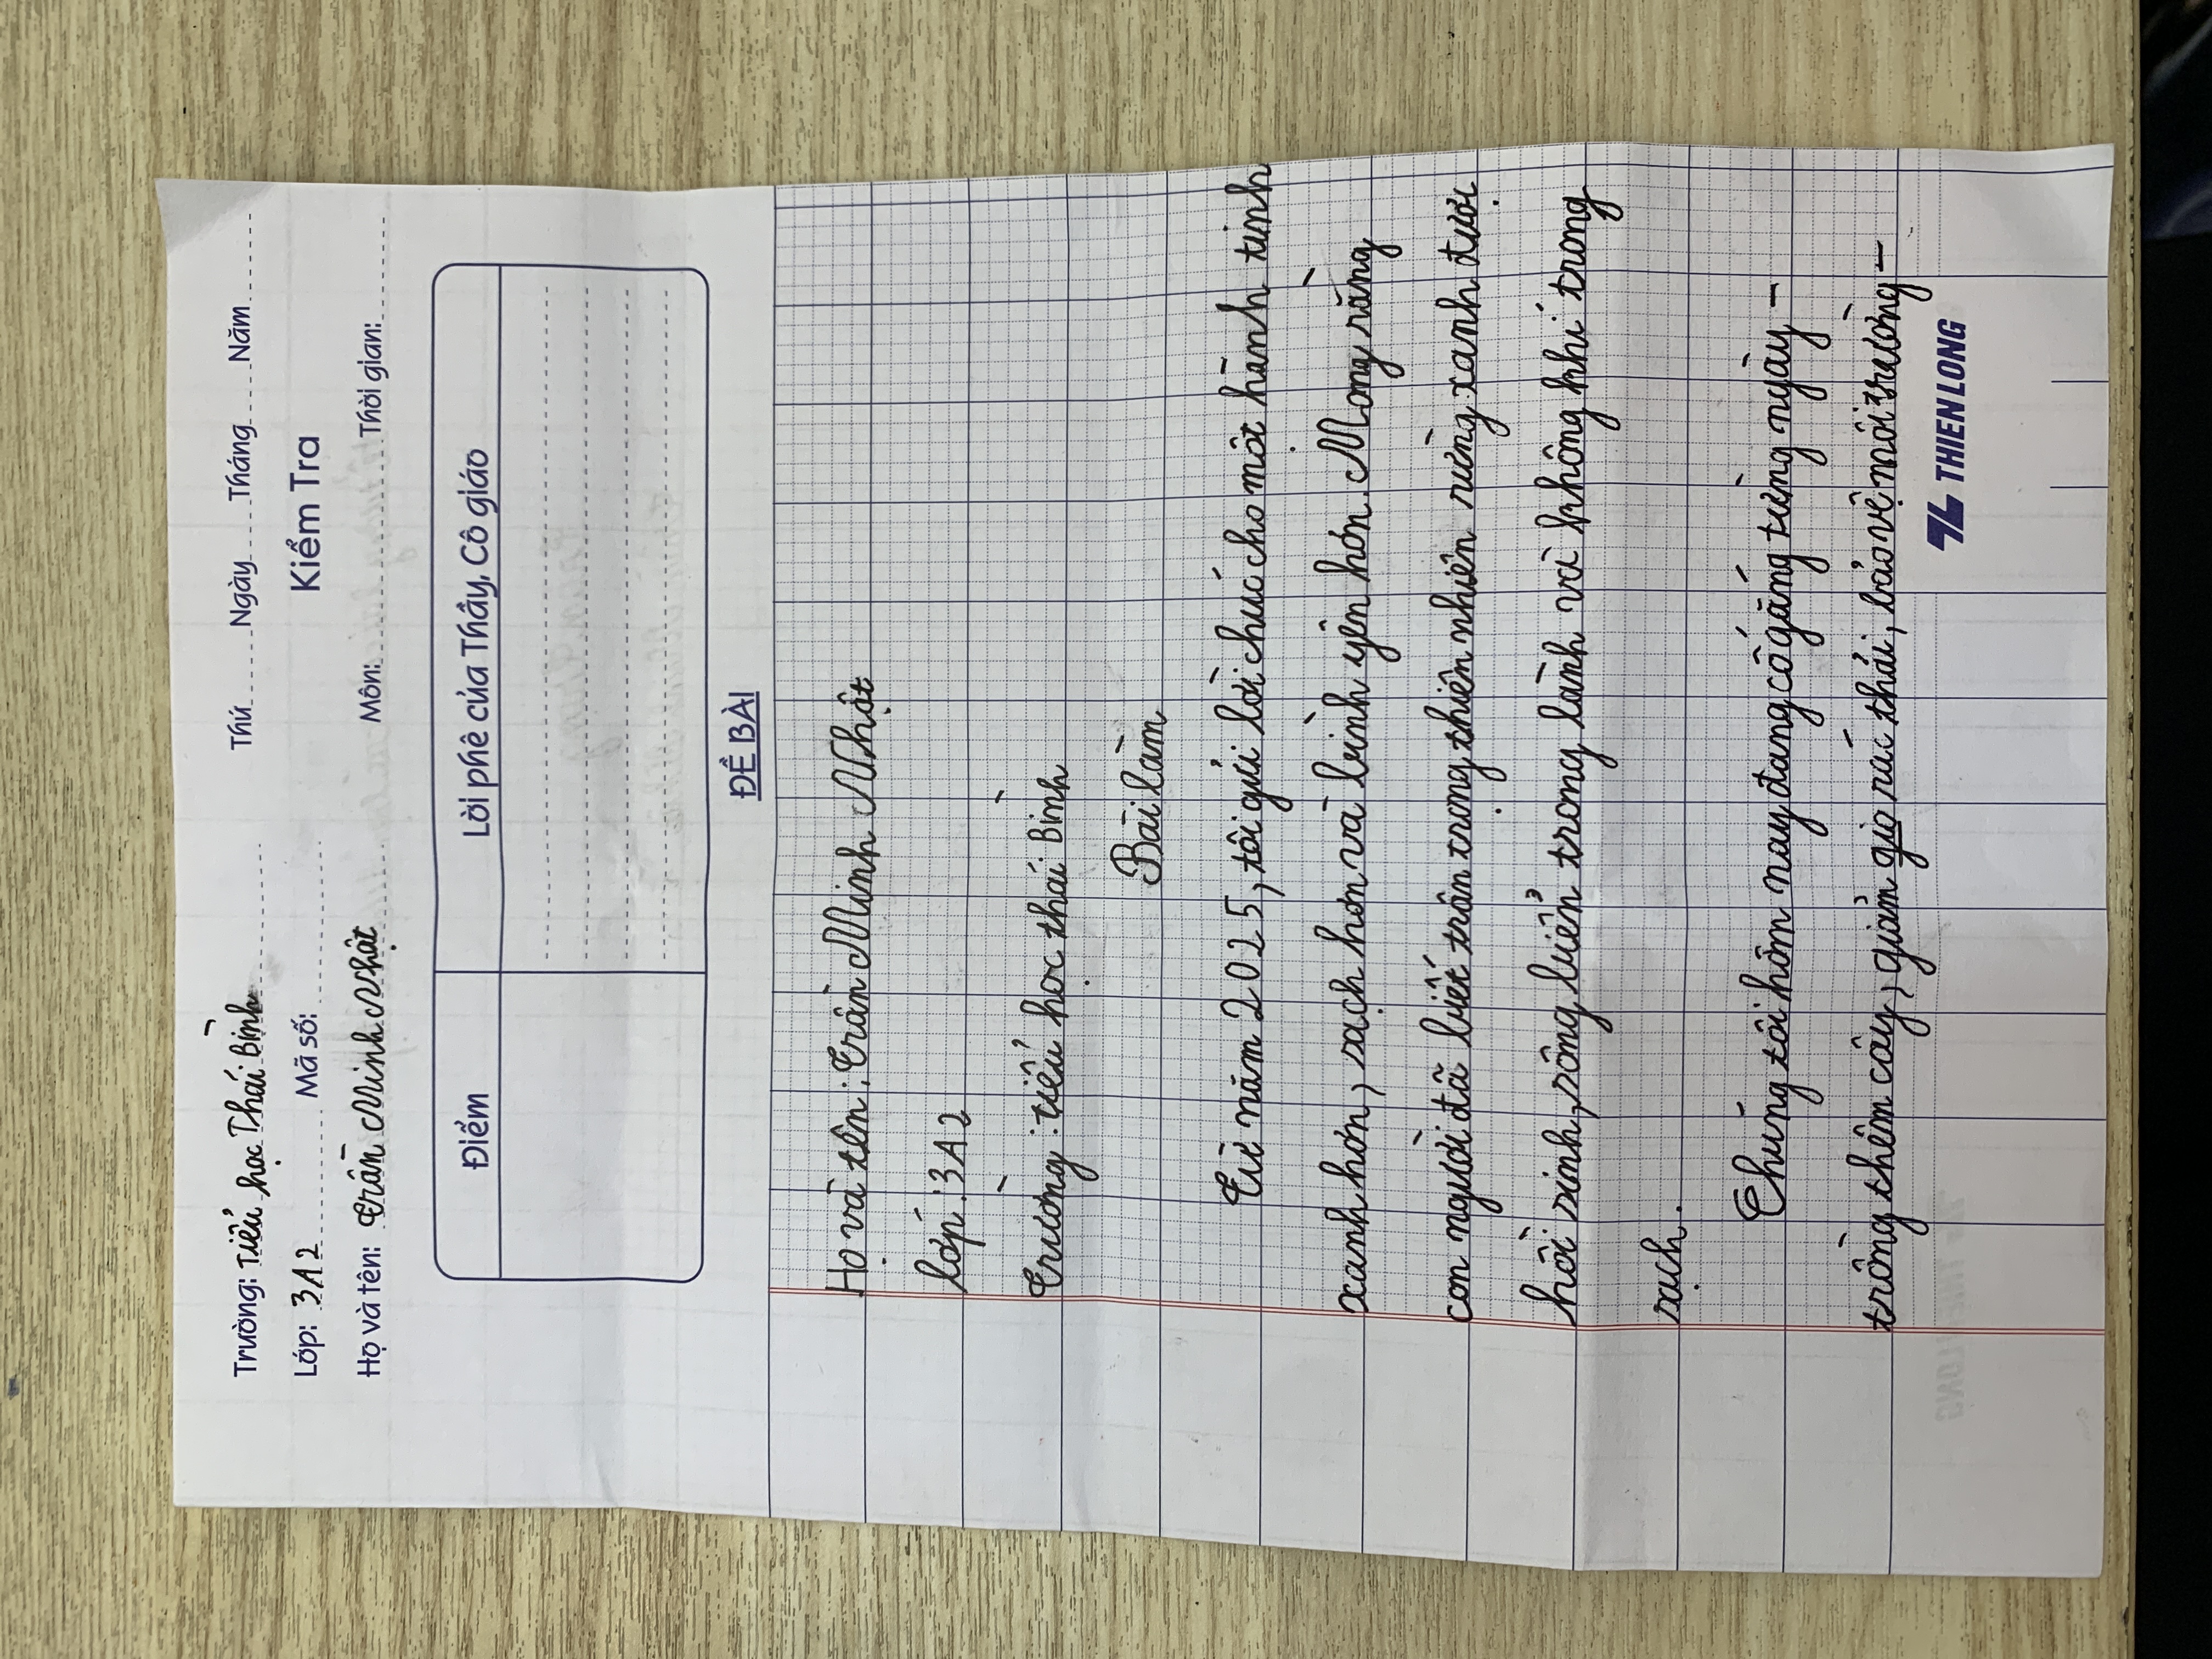 Trường: Tiểu học Thái Bình Thứ Ngày Tháng Năm
Lớp: 3A2 Mã số: Kiểm Tra
Họ và tên: Trần Minh Nhật Môn: Thời gian:
Điểm Lời phê của Thầy, Cô giáo
ĐỀ BÀI
Họ và tên: Trần Minh Nhật
lớp: 3A2
Trường: tiểu học thái Bình
Bài làm
Từ năm 2025, tôi gửi lời chúc cho một hành tinh
xanh hơn, sạch hơn và bình yên hơn. Mong rằng
con người đã biết trân trọng thiên nhiên rừng xanh được
hồi sinh, sông biển trong lành và không khí trong
sạch.
Chúng tôi hôm nay đang cố gắng từng ngày –
trồng thêm cây, giảm gio rác thải, bảo vệ môi trường –
THIEN LONG